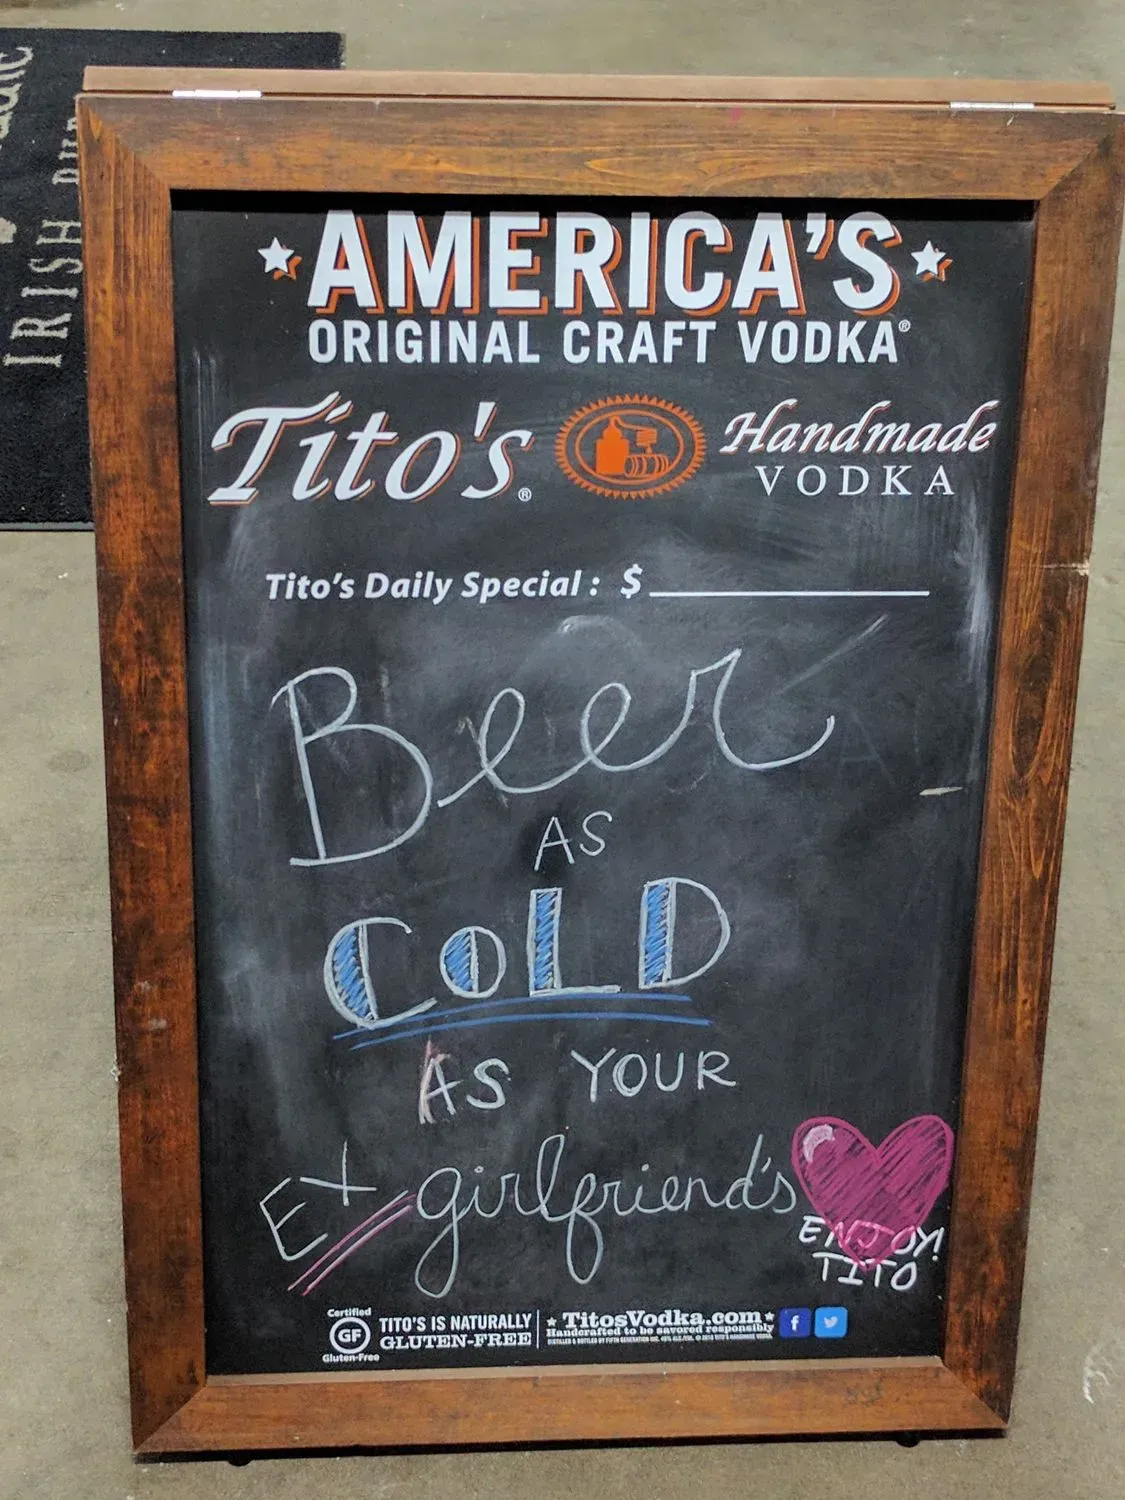 IRISH
AMERICA'S
ORIGINAL CRAFT VODKA®
Tito's® Handmade
VODKA
Tito's Daily Special : $
Beer
AS
COLD
AS YOUR
Ex girlfriend's
ENJOY!
TITO
Certified
GF
Gluten-Free
TITO'S IS NATURALLY
GLUTEN-FREE
TitosVodka.com
Handcrafted to be savored responsibly